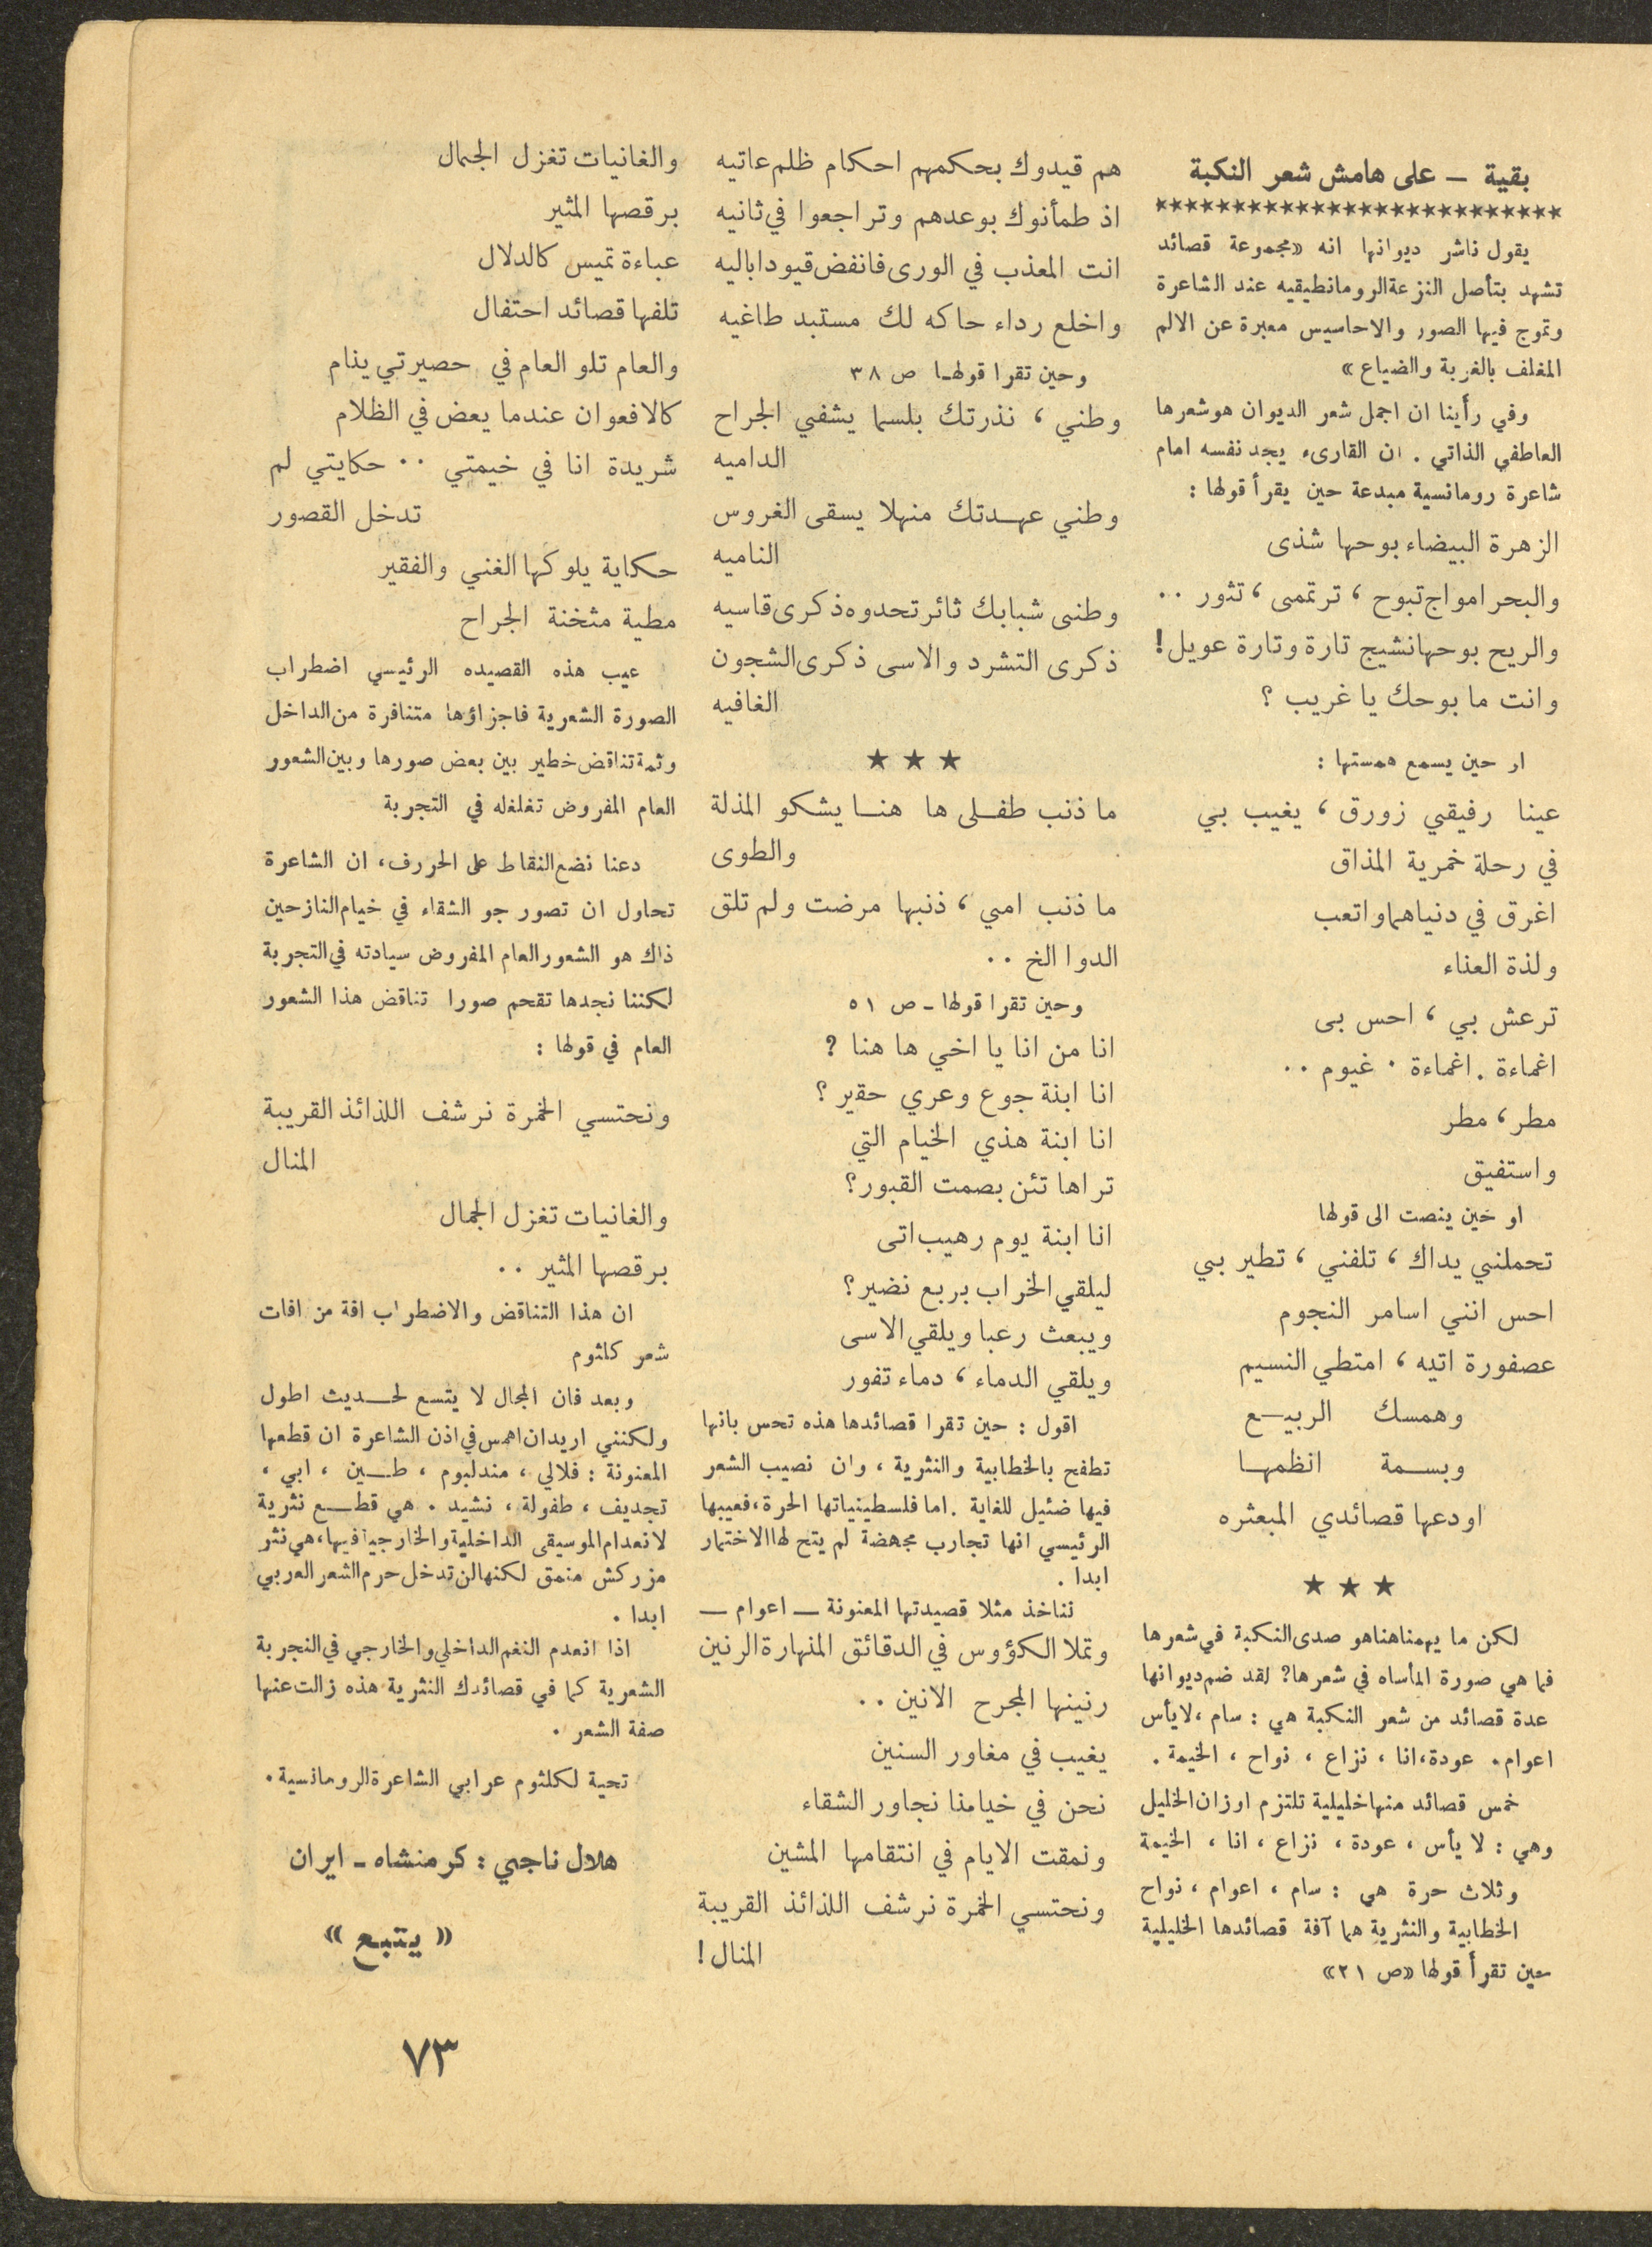 بقية — على هامش شعر النكبة
**************************
يقول ناشر ديوانها انه «مجموعة قصائد
تشهد بتأصل النزعة الرومانطيقيه عند الشاعرة
وتموج فيها الصور والاحاسيس معبرة عن الالم
المغلف بالغربة والضياع»
وفي رأينا ان اجمل شعر الديوان هو شعرها
العاطفي الذاتي . ان القارىء يجد نفسه امام
شاعرة رومانسية مبدعة حين يقرأ قولها :
الزهرة البيضاء بوحها شذى
والبحر امواج تبوح ، ترتمى ، تثور ..
والريح بوحها نشيج تارة وتارة عويل !
وانت ما بوحك يا غريب ؟
او حين يسمع همستها :
عينا رفيقي زورق ، يغيب بي
في رحلة خمرية المذاق
اغرق في دنياهما واتعب
ولذة العناء
ترعش بي ، احس بى
اغماءة . اغماءة . غيوم ..
مطر ، مطر
واستفيق
او خين ينصت الى قولها
تحملني يداك ، تلفني ، تطير بي
احس انني اسامر النجوم
عصفورة اتيه ، امتطي النسيم
وهمسك الربيـع
وبسـمة انظمهـا
اودعها قصائدي المبعثره
★ ★ ★
لكن ما يهمنا هنا هو صدى النكبة في شعرها
فما هي صورة المأساه في شعرها؟ لقد ضم ديوانها
عدة قصائد من شعر النكبة هي : سام ، لا يأس
اعوام . عودة ، انا ، نزاع ، نواح ، الخيمة .
خمس قصائد منها خليلية تلتزم اوزان الخليل
وهي : لا يأس ، عودة ، نزاع ، انا ، الخيمة
وثلاث حرة هي : سام ، اعوام ، نواح
الخطابية والنثرية هما آفة قصائدها الخليلية
حين تقرأ قولها «ص ٢١»
هم قيدوك بحكمهم احكام ظلم عاتيه
اذ طمأنوك بوعدهم وتراجعوا في ثانيه
انت المعذب في الورى فانفض قيودا باليه
واخلع رداء حاكه لك مستبد طاغيه
وحين تقرا قولهـا ص ٣٨
وطني ، نذرتك بلسما يشفي الجراح
الداميه
وطني عهـدتك منهلا يسقى الغروس
الناميه
وطنى شبابك ثائر تحدوه ذكرى قاسيه
ذكرى التشرد والاسى ذكرى الشجون
الغافيه
★ ★ ★
ما ذنب طفـلى ها هنـا يشكو المذلة
والطوى
ما ذنب امي ، ذنبها مرضت ولم تلق
الدوا الخ ..
وحين تقرا قولها - ص ٥١
انا من انا يا اخي ها هنا ؟
انا ابنة جوع وعري حقير ؟
انا ابنة هذي الخيام التي
تراها تئن بصمت القبور؟
انا ابنة يوم رهيب اتى
ليلقي الخراب بربع نضير؟
ويبعث رعبا ويلقي الاسى
ويلقي الدماء ، دماء تفور
اقول : حين تقرا قصائدها هذه تحس بانها
تطفح بالخطابية والنثرية ، وان نصيب الشعر
فيها ضئيل للغاية . اما فلسطينياتها الحرة ، فعيبها
الرئيسي انها تجارب مجهضة لم يتح لها الاختمار
ابدا .
نناخذ مثلا قصيدتها المعنونة — اعوام —
وتملا الكؤوس في الدقائق المنهارة الرنين
رنينها المجرح الانين ..
يغيب في مغاور السنين
نحن في خيامنا نجاور الشقاء
ونمقت الايام في انتقامها المشين
ونحتسي الخمرة نرشف اللذائذ القريبة
المنال !
والغانيات تغزل الجمال
برقصها المثير
عباءة تميس كالدلال
تلفها قصائد احتفال
والعام تلو العام في حصيرتي ينام
كالافعوان عندما يعض في الظلام
شريدة انا في خيمتي .. حكايتي لم
تدخل القصور
حكاية يلوكها الغني والفقير
مطية مثخنة الجراح
عيب هذه القصيده الرئيسي اضطراب
الصورة الشعرية فاجزاؤها متنافرة من الداخل
وثمة تناقض خطير بين بعض صورها وبين الشعور
العام المفروض تغلغله في التجربة
دعنا نضع النقاط على الحررف ، ان الشاعرة
تحاول ان تصور جو الشقاء في خيام النازحين
ذاك هو الشعور العام المفروض سيادته في التجربة
لكننا نجدها تقحم صورا تناقض هذا الشعور
العام في قولها :
ونحتسي الخمرة نرشف اللذائذ القريبة
المنال
والغانيات تغزل الجمال
برقصها المثير ..
ان هذا التناقض والاضطراب افة من افات
شعر كلثوم
وبعد فان المجال لا يتسع لحـديث اطول
ولكنني اريد ان اهمس في اذن الشاعرة ان قطعها
المعنونة : فلالي ، مندلبوم ، طـين ، ابي ،
تجديف ، طفولة ، نشيد . هي قطـع نثرية
لانعدام الموسيقى الداخلية والخارجية فيها ، هي نثر
مزركش منمق لكنها لن تدخل حرم الشعر العربي
ابدا .
اذا انعدم النغم الداخلي والخارجي في التجربة
الشعرية كما في قصائدك النثرية هذه زالت عنها
صفة الشعر .
تحية لكلثوم عرابي الشاعرة الرومانسية .
هلال ناجي : كرمنشاه - ايران
« يتبع »
٧٣